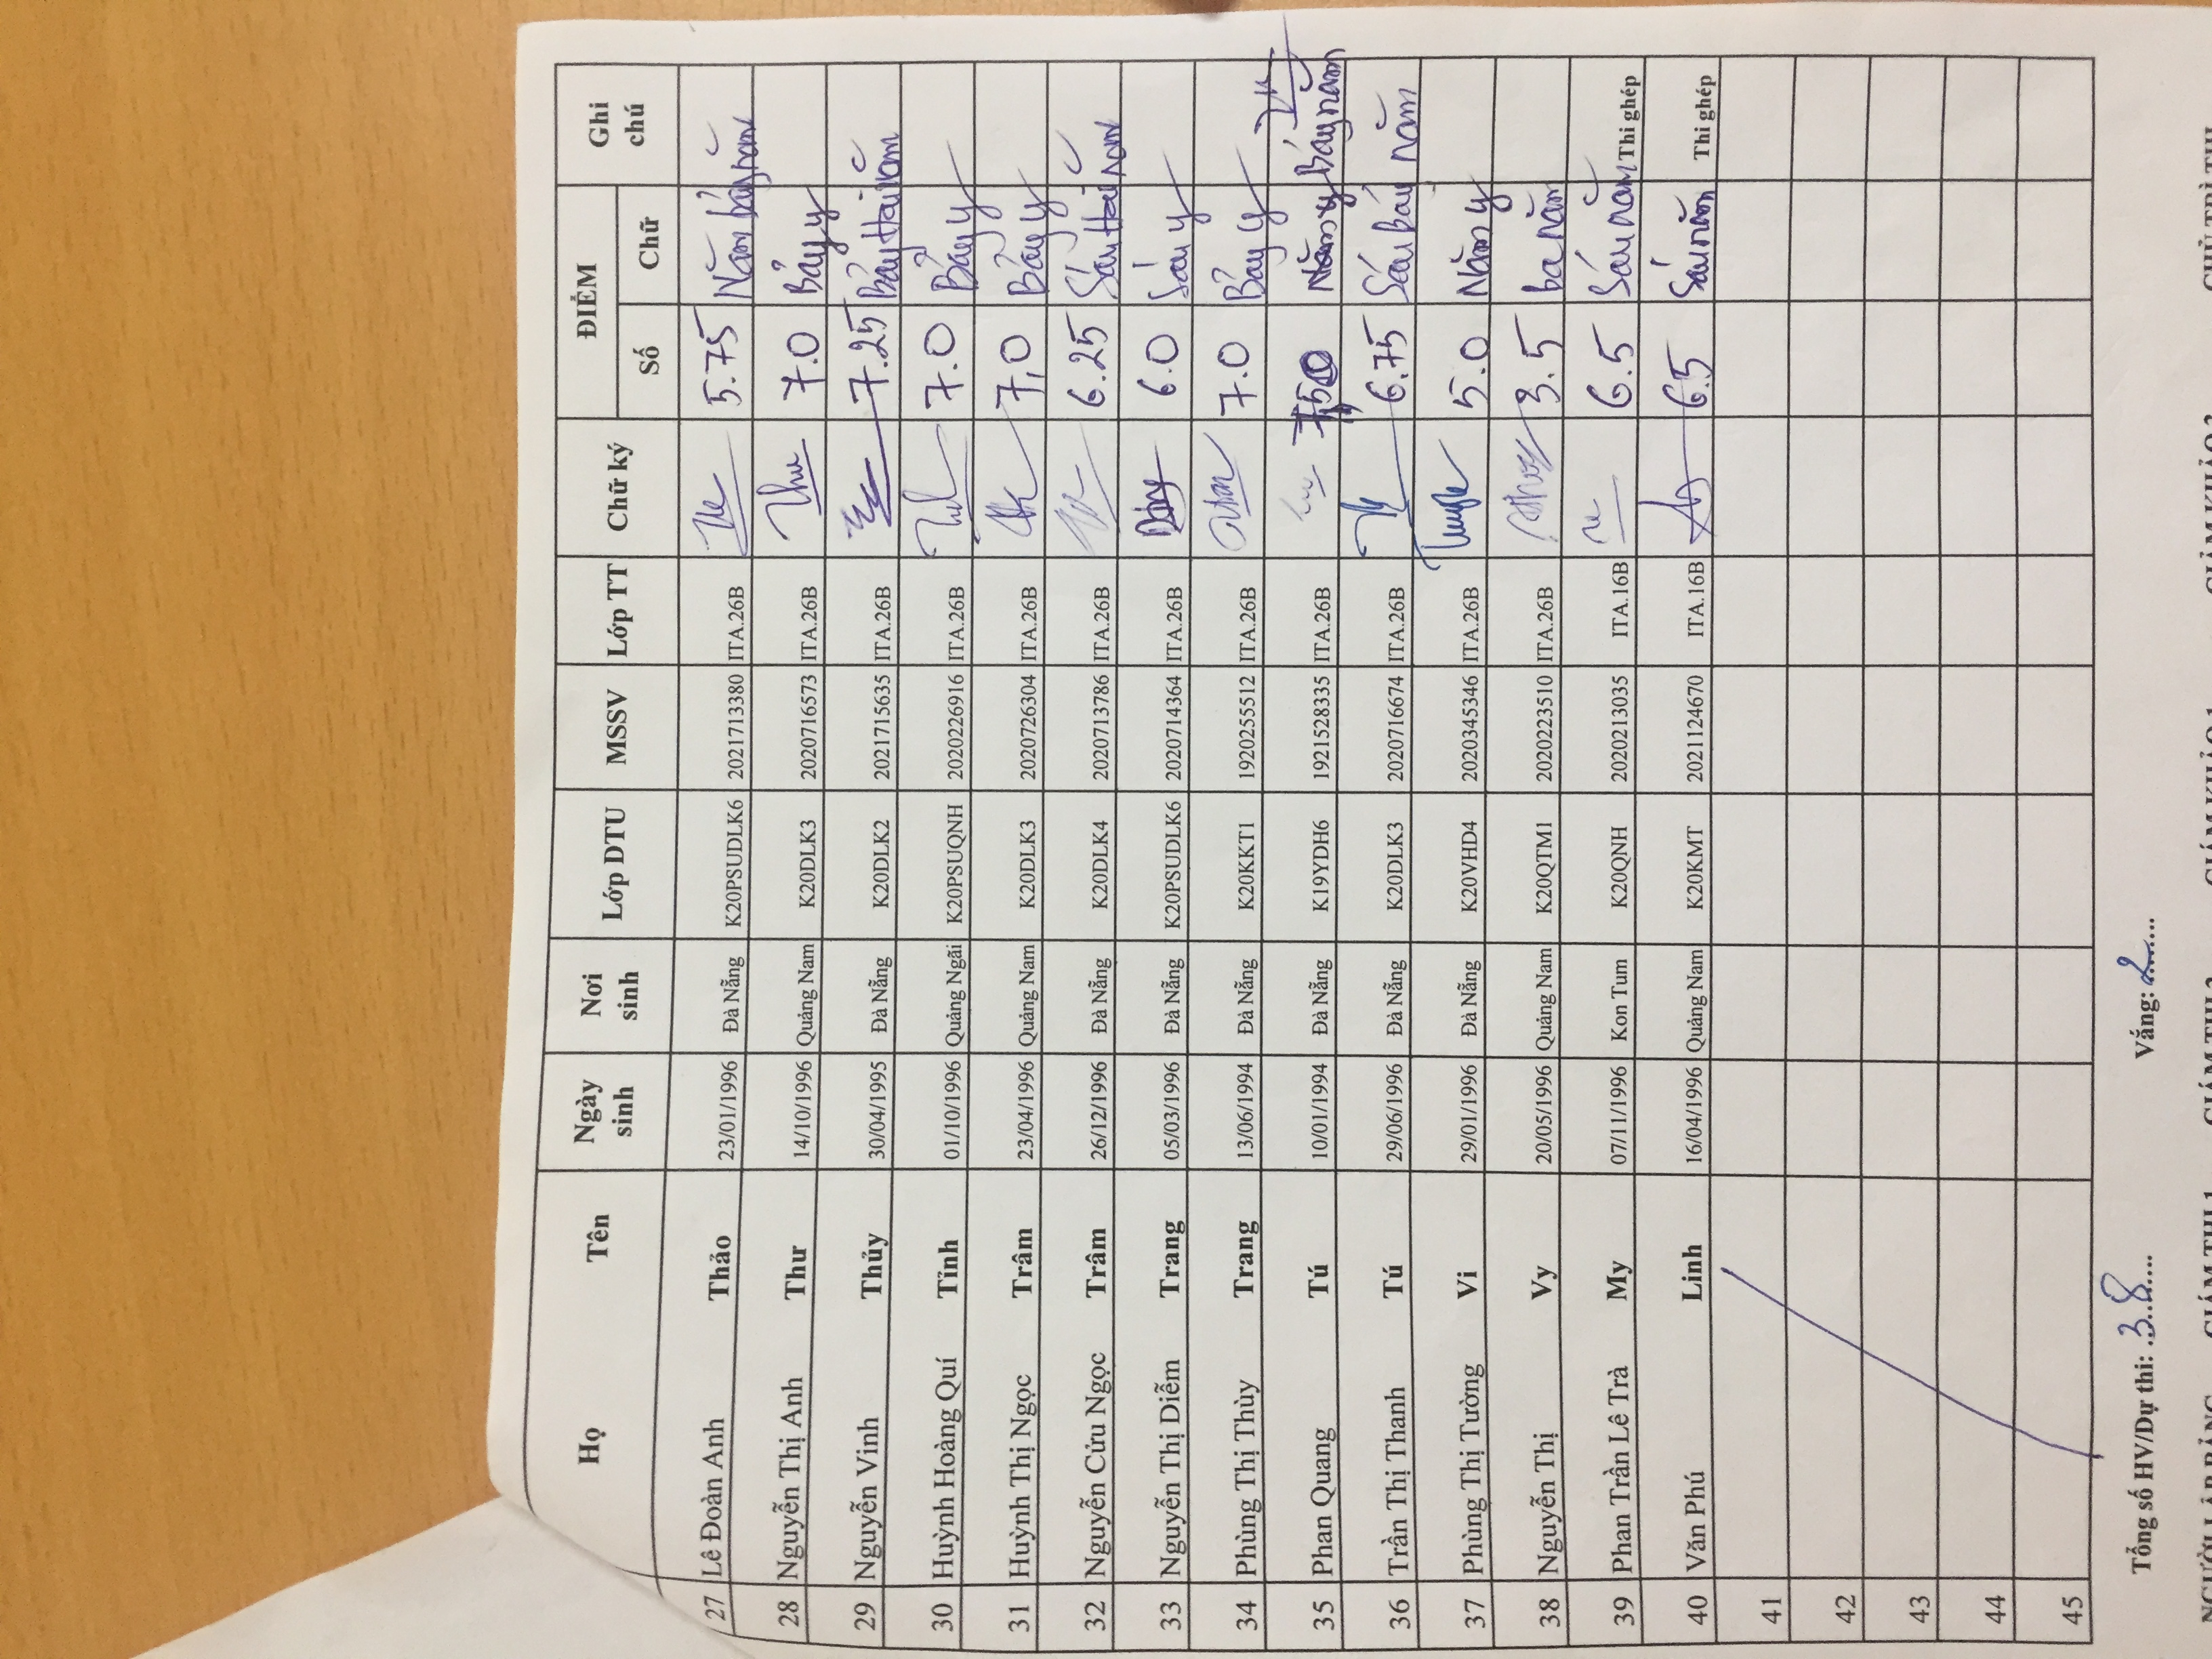 Họ Tên Ngày sinh Nơi sinh Lớp DTU MSSV Lớp TT Chữ ký ĐIỂM Ghi chú
Số Chữ
27 Lê Đoàn Anh Thảo 23/01/1996 Đà Nẵng K20PSUDLK6 2021713380 ITA.26B 5.75 Năm bảy năm
28 Nguyễn Thị Anh Thư 14/10/1996 Quảng Nam K20DLK3 2020716573 ITA.26B Thu 7.0 Bảy y
29 Nguyễn Vinh Thủy 30/04/1995 Đà Nẵng K20DLK2 2021715635 ITA.26B 7.25 Bảy Hai năm
30 Huỳnh Hoàng Quí Tỉnh 01/10/1996 Quảng Ngãi K20PSUQNH 2020226916 ITA.26B 7.0 Bảy y
31 Huỳnh Thị Ngọc Trâm 23/04/1996 Quảng Nam K20DLK3 2020726304 ITA.26B 7,0 Bảy y
32 Nguyễn Cửu Ngọc Trâm 26/12/1996 Đà Nẵng K20DLK4 2020713786 ITA.26B 6.25 Sáu Hai năm
33 Nguyễn Thị Diễm Trang 05/03/1996 Đà Nẵng K20PSUDLK6 2020714364 ITA.26B 6.0 Sáu y
34 Phùng Thị Thùy Trang 13/06/1994 Đà Nẵng K20KKT1 1920255512 ITA.26B 7.0 Bảy y
35 Phan Quang Tú 10/01/1994 Đà Nẵng K19YDH6 1921528335 ITA.26B Năm y Bảy năm
36 Trần Thị Thanh Tú 29/06/1996 Đà Nẵng K20DLK3 2020716674 ITA.26B 6.75 Sáu bảy năm
37 Phùng Thị Tường Vi 29/01/1996 Đà Nẵng K20VHD4 2020345346 ITA.26B 5.0 Năm y
38 Nguyễn Thị Vy 20/05/1996 Quảng Nam K20QTM1 2020223510 ITA.26B 3.5 ba năm
39 Phan Trần Lê Trà My 07/11/1996 Kon Tum K20QNH 2020213035 ITA.16B 6.5 Sáu năm Thi ghép
40 Văn Phú Linh 16/04/1996 Quảng Nam K20KMT 2021124670 ITA.16B 6.5 Sáu năm Thi ghép
41
42
43
44
45
Tổng số HV/Dự thi: 38 Vắng: 2